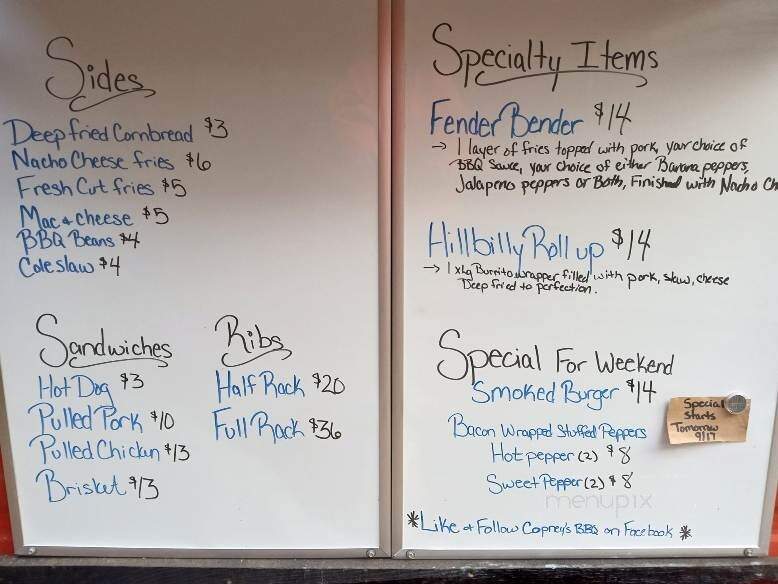 Sides
Deep fried Cornbread $3
Nacho Cheese fries $6
Fresh Cut fries $5
Mac & cheese $5
BBQ Beans $4
Coleslaw $4
Sandwiches
Hot Dog $3
Pulled Pork $10
Pulled Chicken $13
Brisket $13
Ribs
Half Rack $20
Full Rack $36
Specialty Items
Fender Bender $14
→ 1 layer of fries topped with pork, your choice of
BBQ Sauce, your choice of either Banana peppers,
Jalapeno peppers or Both, Finished with Nacho Ch
Hillbilly Roll up $14
→ 1 xlg Burrito wrapper filled with pork, slaw, cheese
Deep fried to perfection.
Special For Weekend
Smoked Burger $14
Special
Starts
Tomorrow
9/17
Bacon Wrapped Stuffed Peppers
Hot pepper (2) $8
Sweet Pepper (2) $8
menupix
*Like & Follow Copney's BBQ on Facebook *